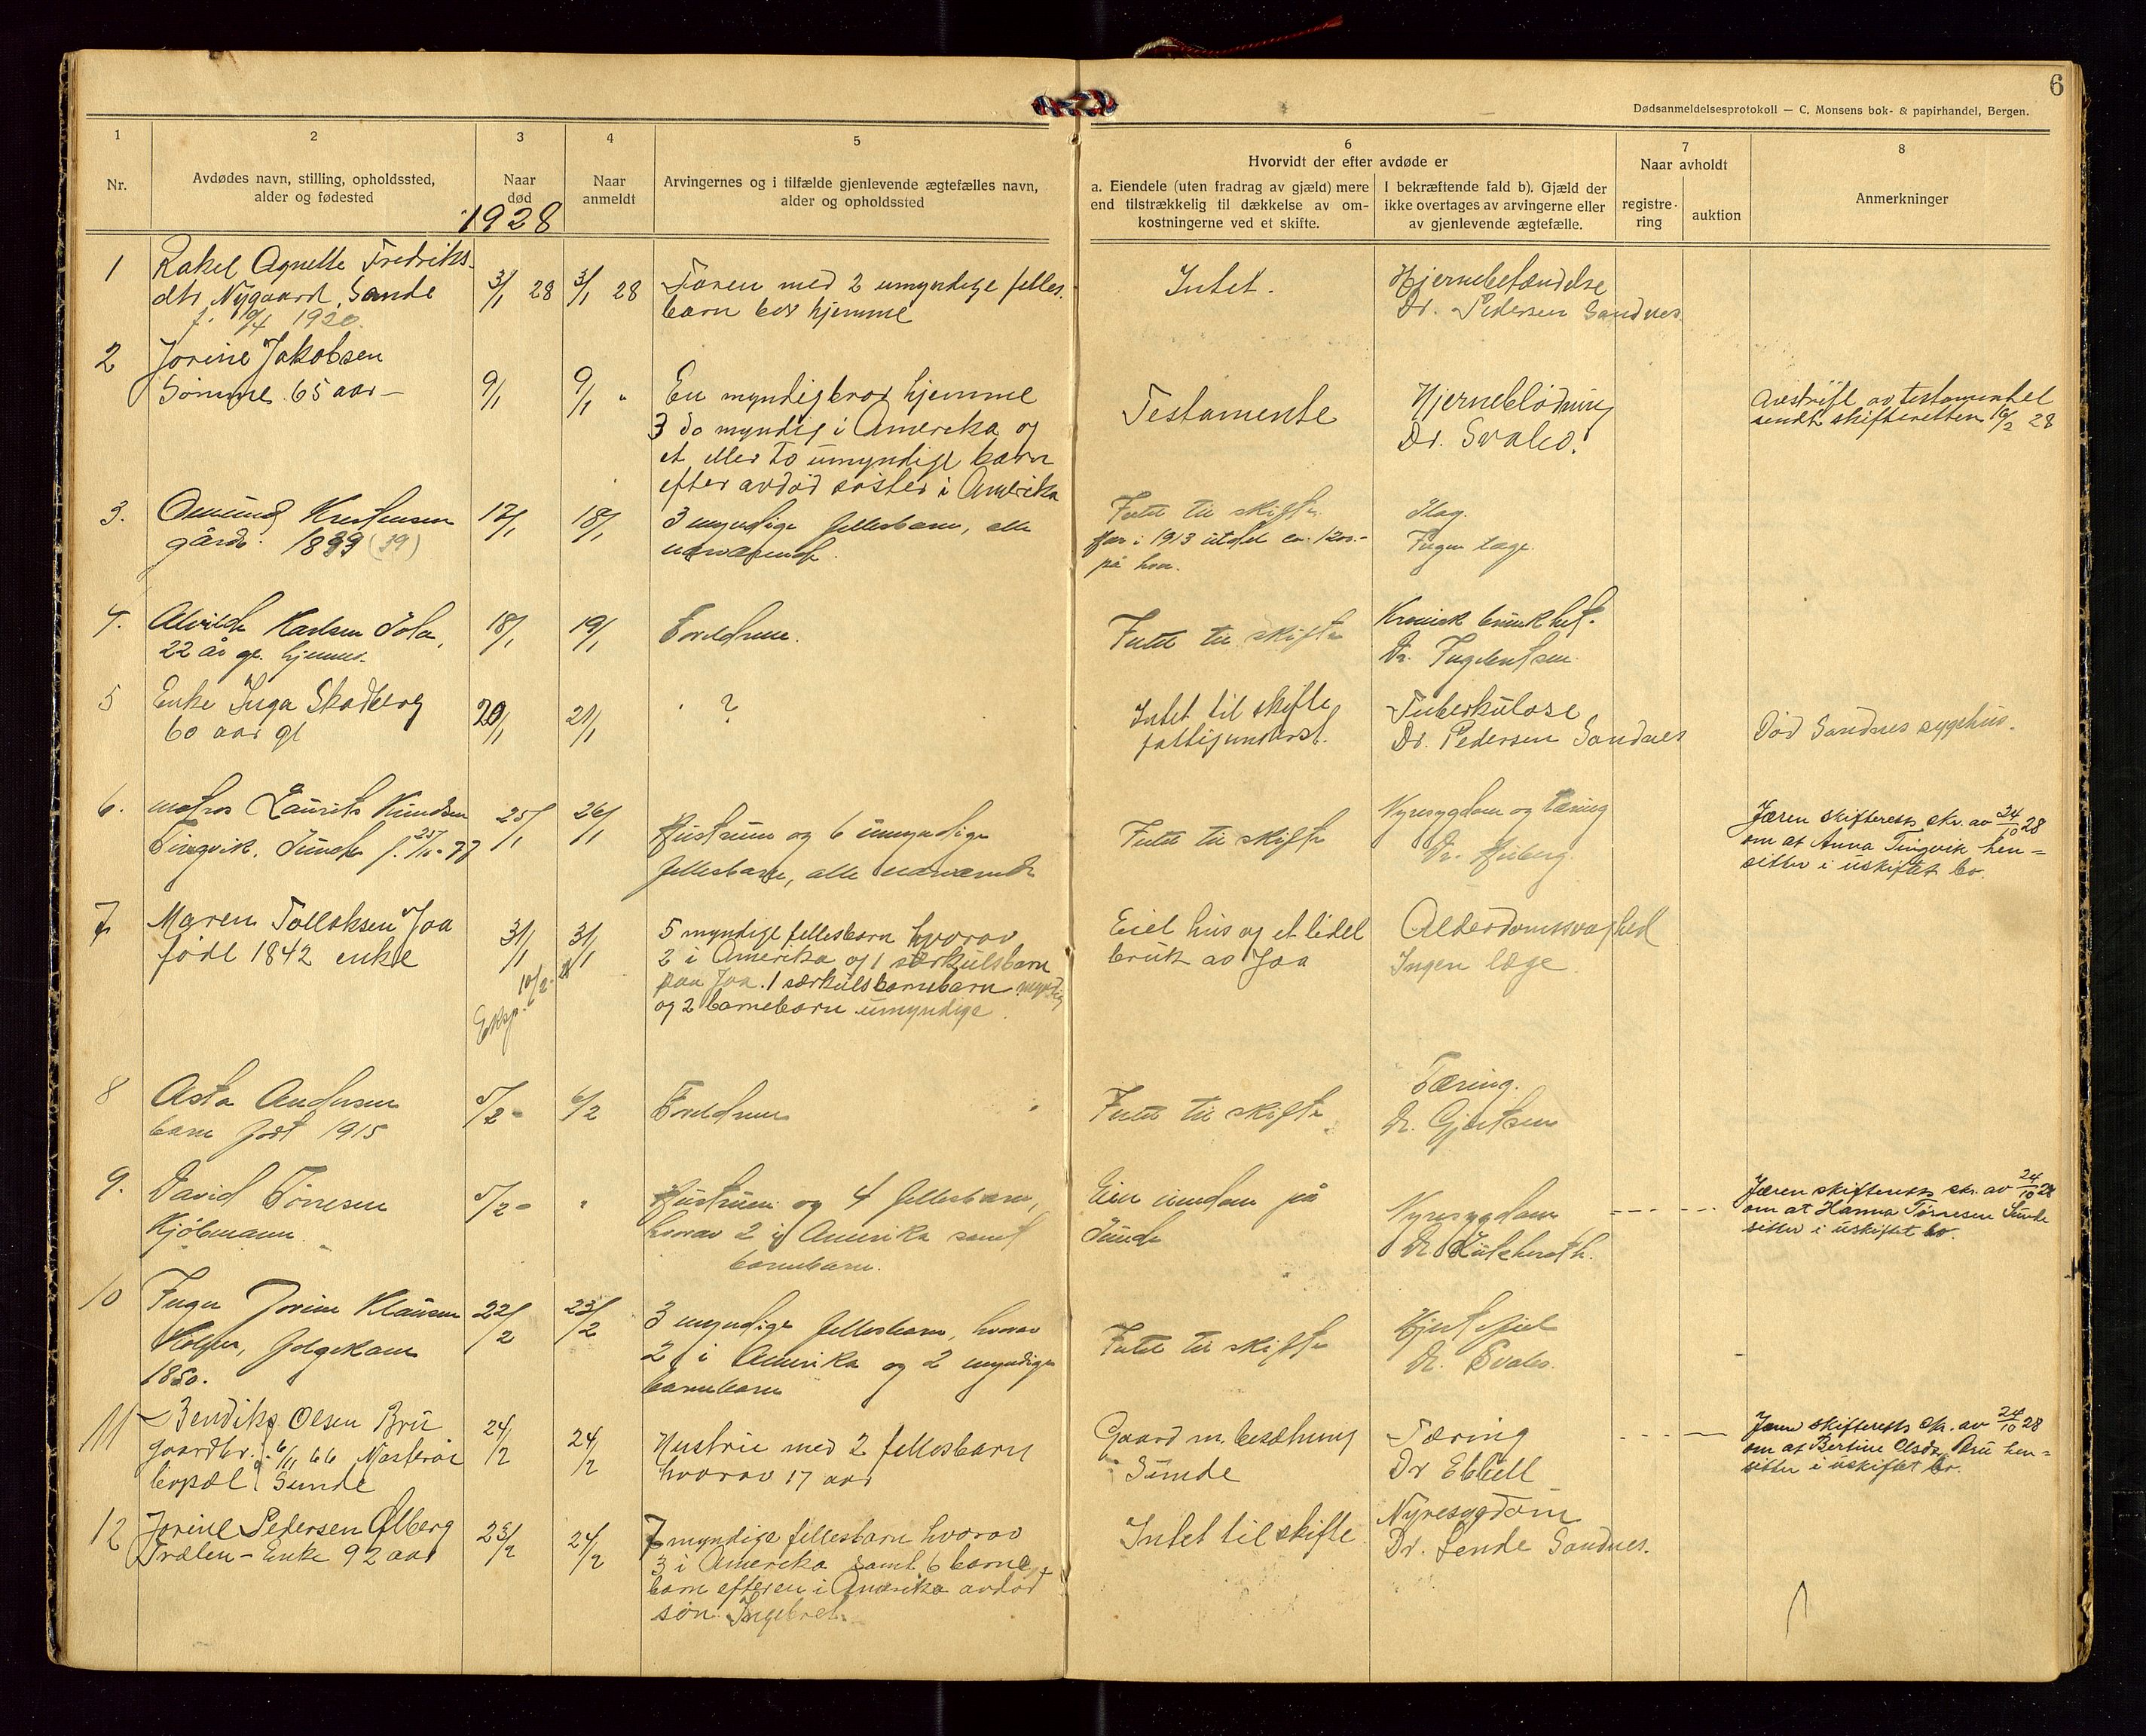 6
Dødsanmeldelsesprotokoll — C. Monsens bok- & papirhandel, Bergen.
1
2
3
4
5
6
7
8
Nr.
Avdødes navn, stilling, opholdssted,
alder og fødested
Naar
død
Naar
anmeldt
Arvingernes og i tilfælde gjenlevende ægtefælles navn,
alder og opholdssted
Hvorvidt der efter avdøde er
a. Eiendele (uten fradrag av gjæld) mere
end tilstrækkelig til dækkelse av om-
kostningerne ved et skifte.
I bekræftende fald b). Gjæld der
ikke overtages av arvingerne eller
av gjenlevende ægtefælle.
Naar avholdt
registre-
ring
auktion
Anmerkninger
1928
1
Rakel Agnette Fredriks-
dtr Nygaard, Sande
f. 10/4 1920.
3/1 28
3/1 28
Faren med 2 umyndige felles-
barn bor hjemme
Intet.
Hjernebetændelse
Dr. Pedersen Sandnes
2
Jorine Jakobsen
Sømme 65 aar —
9/1
9/1 "
En myndig bror hjemme
3 do myndig i Amerika og
et eller to umyndige barn
efter avdød søster i Amerika
Testamente
Hjerneblødning
Dr. Svabo.
Avskrift av testamentet
sendt skifteretten 16/2 28
3.
Kristensen
gårdb. (39)
17/1
18/1
3 myndige fellesbarn, alle
nærværende.
Intet til skifte
for i 1913 utdel ca. 1200.-
på hver.
Slag.
Ingen læge.
4.
Alvilde Karlsen Sola,
22 år gl. hjemme.
18/1
19/1
Foreldrene.
Intet til skifte
Kronisk
Dr. Ingebretsen
5
Enke Inga Skadberg
60 aar gl
20/1
21/1
?
Intet til skifte
fattigunderst.
Tuberkulose
Dr. Pedersen Sandnes
Død Sandnes sygehus.
6.
matros Laurits Knudsen
Tingvik, Sunde f. 77
25/1
26/1
Hustruen og 6 umyndige
fellesbarn, alle nærværende
Intet til skifte
Nyresygdom og tæring
Dr.
Jæren skifteretts skr. av 24/10 28
om at Anna Tingvik hen=
sitter i uskiftet bo.
7
Maren Tollaksen Joa
født 1842 enke
31/1
31/1
Eksp. 10/2 28
5 myndige fellesbarn hvorav
2 i Amerika og 1 særkulsbarn
paa Joa. 1 særkulsbarnebarn myndig
og 2 barnebarn umyndige.
Eiet hus og et lidet
bruk av Joa
Alderdomssvaghed
Ingen læge
8
Asta Andersen
barn født 1915
5/2 -
6/2
Foreldrene
Intet til skifte
Tæring.
Dr. Gjertsen
9.
David Tørresen
Kjøbmann
5/2 -
"
Hustruen og 4 fellesbarn,
hvorav 2 i Amerika samt
barnebarn.
Eier eiendom på
Sunde
Nyresygdom
Dr.
Jæren skifteretts skr. av 24/10 28
om at Hanna Tørresen Sunde
sitter i uskiftet bo.
10
Jorine Klausen
1850.
22/2
23/2
3 myndige fellesbarn, hvorav
2 i Amerika og 2 myndige
barnebarn
Intet til skifte
Hjertefeil
Dr. Svabo.
11
Bendiks Olsen Bru
gaardbr. f. 6/11 66 Mosterøi
bopæl Sunde
24/2
24/2
Hustru med 2 fellesbarn
hvorav 17 aar
Gaard m. besætning
Sunde
Tæring
Dr Ebbell
Jæren skifteretts skr. av 24/10 28
om at Bertine Olsdtr. Bru hen=
sitter i uskiftet bo.
12
Jorine Pedersen Ølberg
Trælen — Enke 92 aar
23/2
24/2
7 myndige fellesbarn hvorav
3 i Amerika samt 6 barne
barn efter en i Amerika avdød
søn Ingebret.
Intet til skifte
Nyresygdom
Dr. Lende Sandnes.